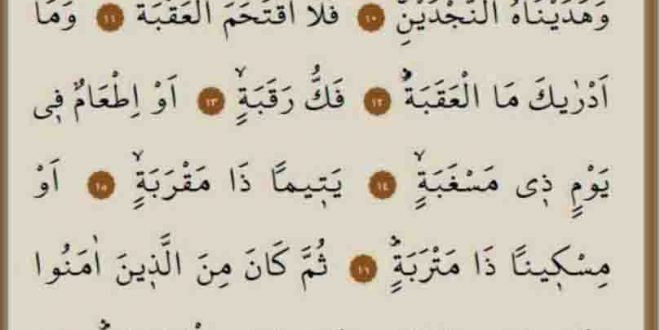 وَهَدَيْنَاهُ النَّجْدَيْنِۚ ١٠ فَلَا اقْتَحَمَ الْعَقَبَةَ ١١ وَمَٓا
اَدْرٰيكَ مَا الْعَقَبَةُۜ ١٢ فَكُّ رَقَبَةٍۙ ١٣ اَوْ اِطْعَامٌ ف۪ي
يَوْمٍ ذ۪ي مَسْغَبَةٍۙ ١٤ يَت۪يمًا ذَا مَقْرَبَةٍۙ ١٥ اَوْ
مِسْك۪ينًا ذَا مَتْرَبَةٍۜ ١٦ ثُمَّ كَانَ مِنَ الَّذ۪ينَ اٰمَنُوا